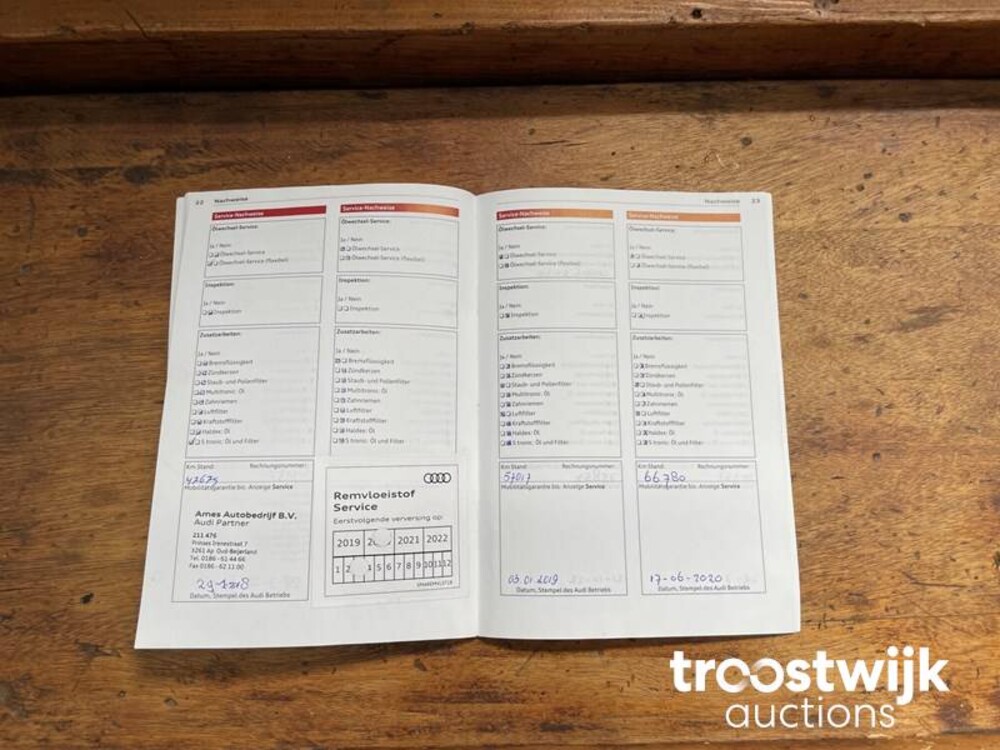 22 Nachweise
Service-Nachweise
Ölwechsel-Service:
Ja / Nein
Ölwechsel-Service
Ölwechsel-Service (flexibel)
Inspektion:
Ja / Nein
Inspektion
Zusatzarbeiten:
Ja / Nein
Bremsflüssigkeit
Zündkerzen
Staub- und Pollenfilter
Multitronic: Öl
Zahnriemen
Luftfilter
Kraftstofffilter
Haldex: Öl
S tronic: Öl und Filter
Km Stand: Rechnungsnummer:
Mobilitätsgarantie bis: Anzeige Service
Ames Autobedrijf B.V.
Audi Partner
211.476
Prinses Irenestraat 7
3261 Ap Oud-Beijerland
Tel. 0186 - 61 44 66
Fax 0186 - 62 11 00
Datum, Stempel des Audi Betriebs
Service-Nachweise
Ölwechsel-Service:
Ja / Nein
Ölwechsel-Service
Ölwechsel-Service (flexibel)
Inspektion:
Ja / Nein
Inspektion
Zusatzarbeiten:
Ja / Nein
Bremsflüssigkeit
Zündkerzen
Staub- und Pollenfilter
Multitronic: Öl
Zahnriemen
Luftfilter
Kraftstofffilter
Haldex: Öl
S tronic: Öl und Filter
Remvloeistof
Service
Eerstvolgende verversing op:
2019 2021 2022
1 2 4 5 6 7 8 9 10 11 12
Nachweise 23
Service-Nachweise
Ölwechsel-Service:
Ja / Nein
Ölwechsel-Service
Ölwechsel-Service (flexibel)
Inspektion:
Ja / Nein
Inspektion
Zusatzarbeiten:
Ja / Nein
Bremsflüssigkeit
Zündkerzen
Staub- und Pollenfilter
Multitronic: Öl
Zahnriemen
Luftfilter
Kraftstofffilter
Haldex: Öl
S tronic: Öl und Filter
Km Stand: Rechnungsnummer:
57017
Mobilitätsgarantie bis: Anzeige Service
03.01.2019
Datum, Stempel des Audi Betriebs
Service-Nachweise
Ölwechsel-Service:
Ja / Nein
Ölwechsel-Service
Ölwechsel-Service (flexibel)
Inspektion:
Ja / Nein
Inspektion
Zusatzarbeiten:
Ja / Nein
Bremsflüssigkeit
Zündkerzen
Staub- und Pollenfilter
Multitronic: Öl
Zahnriemen
Luftfilter
Kraftstofffilter
Haldex: Öl
S tronic: Öl und Filter
Km Stand: Rechnungsnummer:
66780
Mobilitätsgarantie bis: Anzeige Service
17-06-2020
Datum, Stempel des Audi Betriebs
troostwijk
auctions